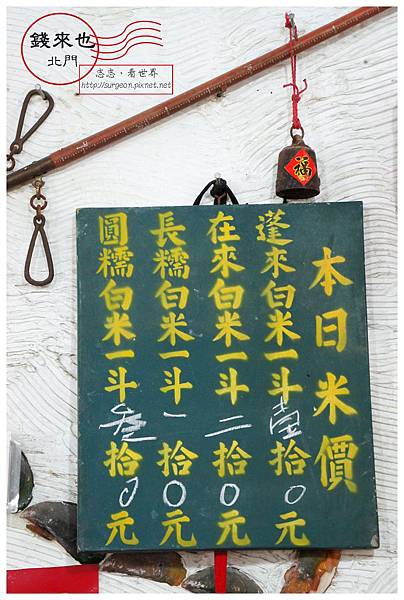 錢來也
北門
志志、看世界
http://surgeon.pixnet.net
福
本日米價
蓬來白米一斗壹拾0元
在來白米一斗二拾0元
長糯白米一斗一拾0元
圓糯白米一斗叁拾0元